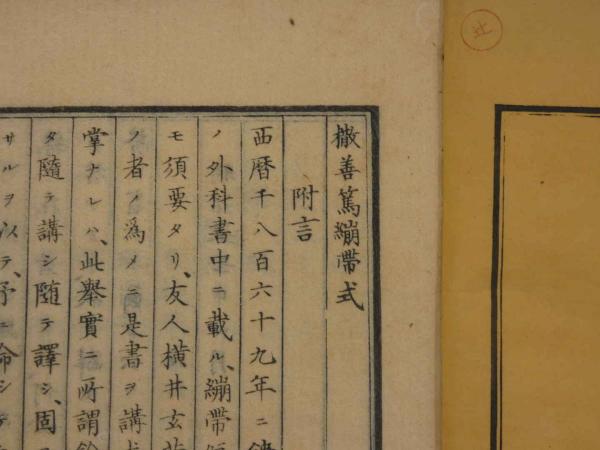 撒善篤繃帶式
附言
西暦千八百六十九年ニ
ノ外科書中ニ載ル、繃帶
モ須要タリ、友人横井玄
ノ者ノ爲メニ是書ヲ講
掌ナレハ、此舉實ニ所謂
タ隨テ講シ隨テ譯シ、固
サルヲ以テ、予ニ命シテ